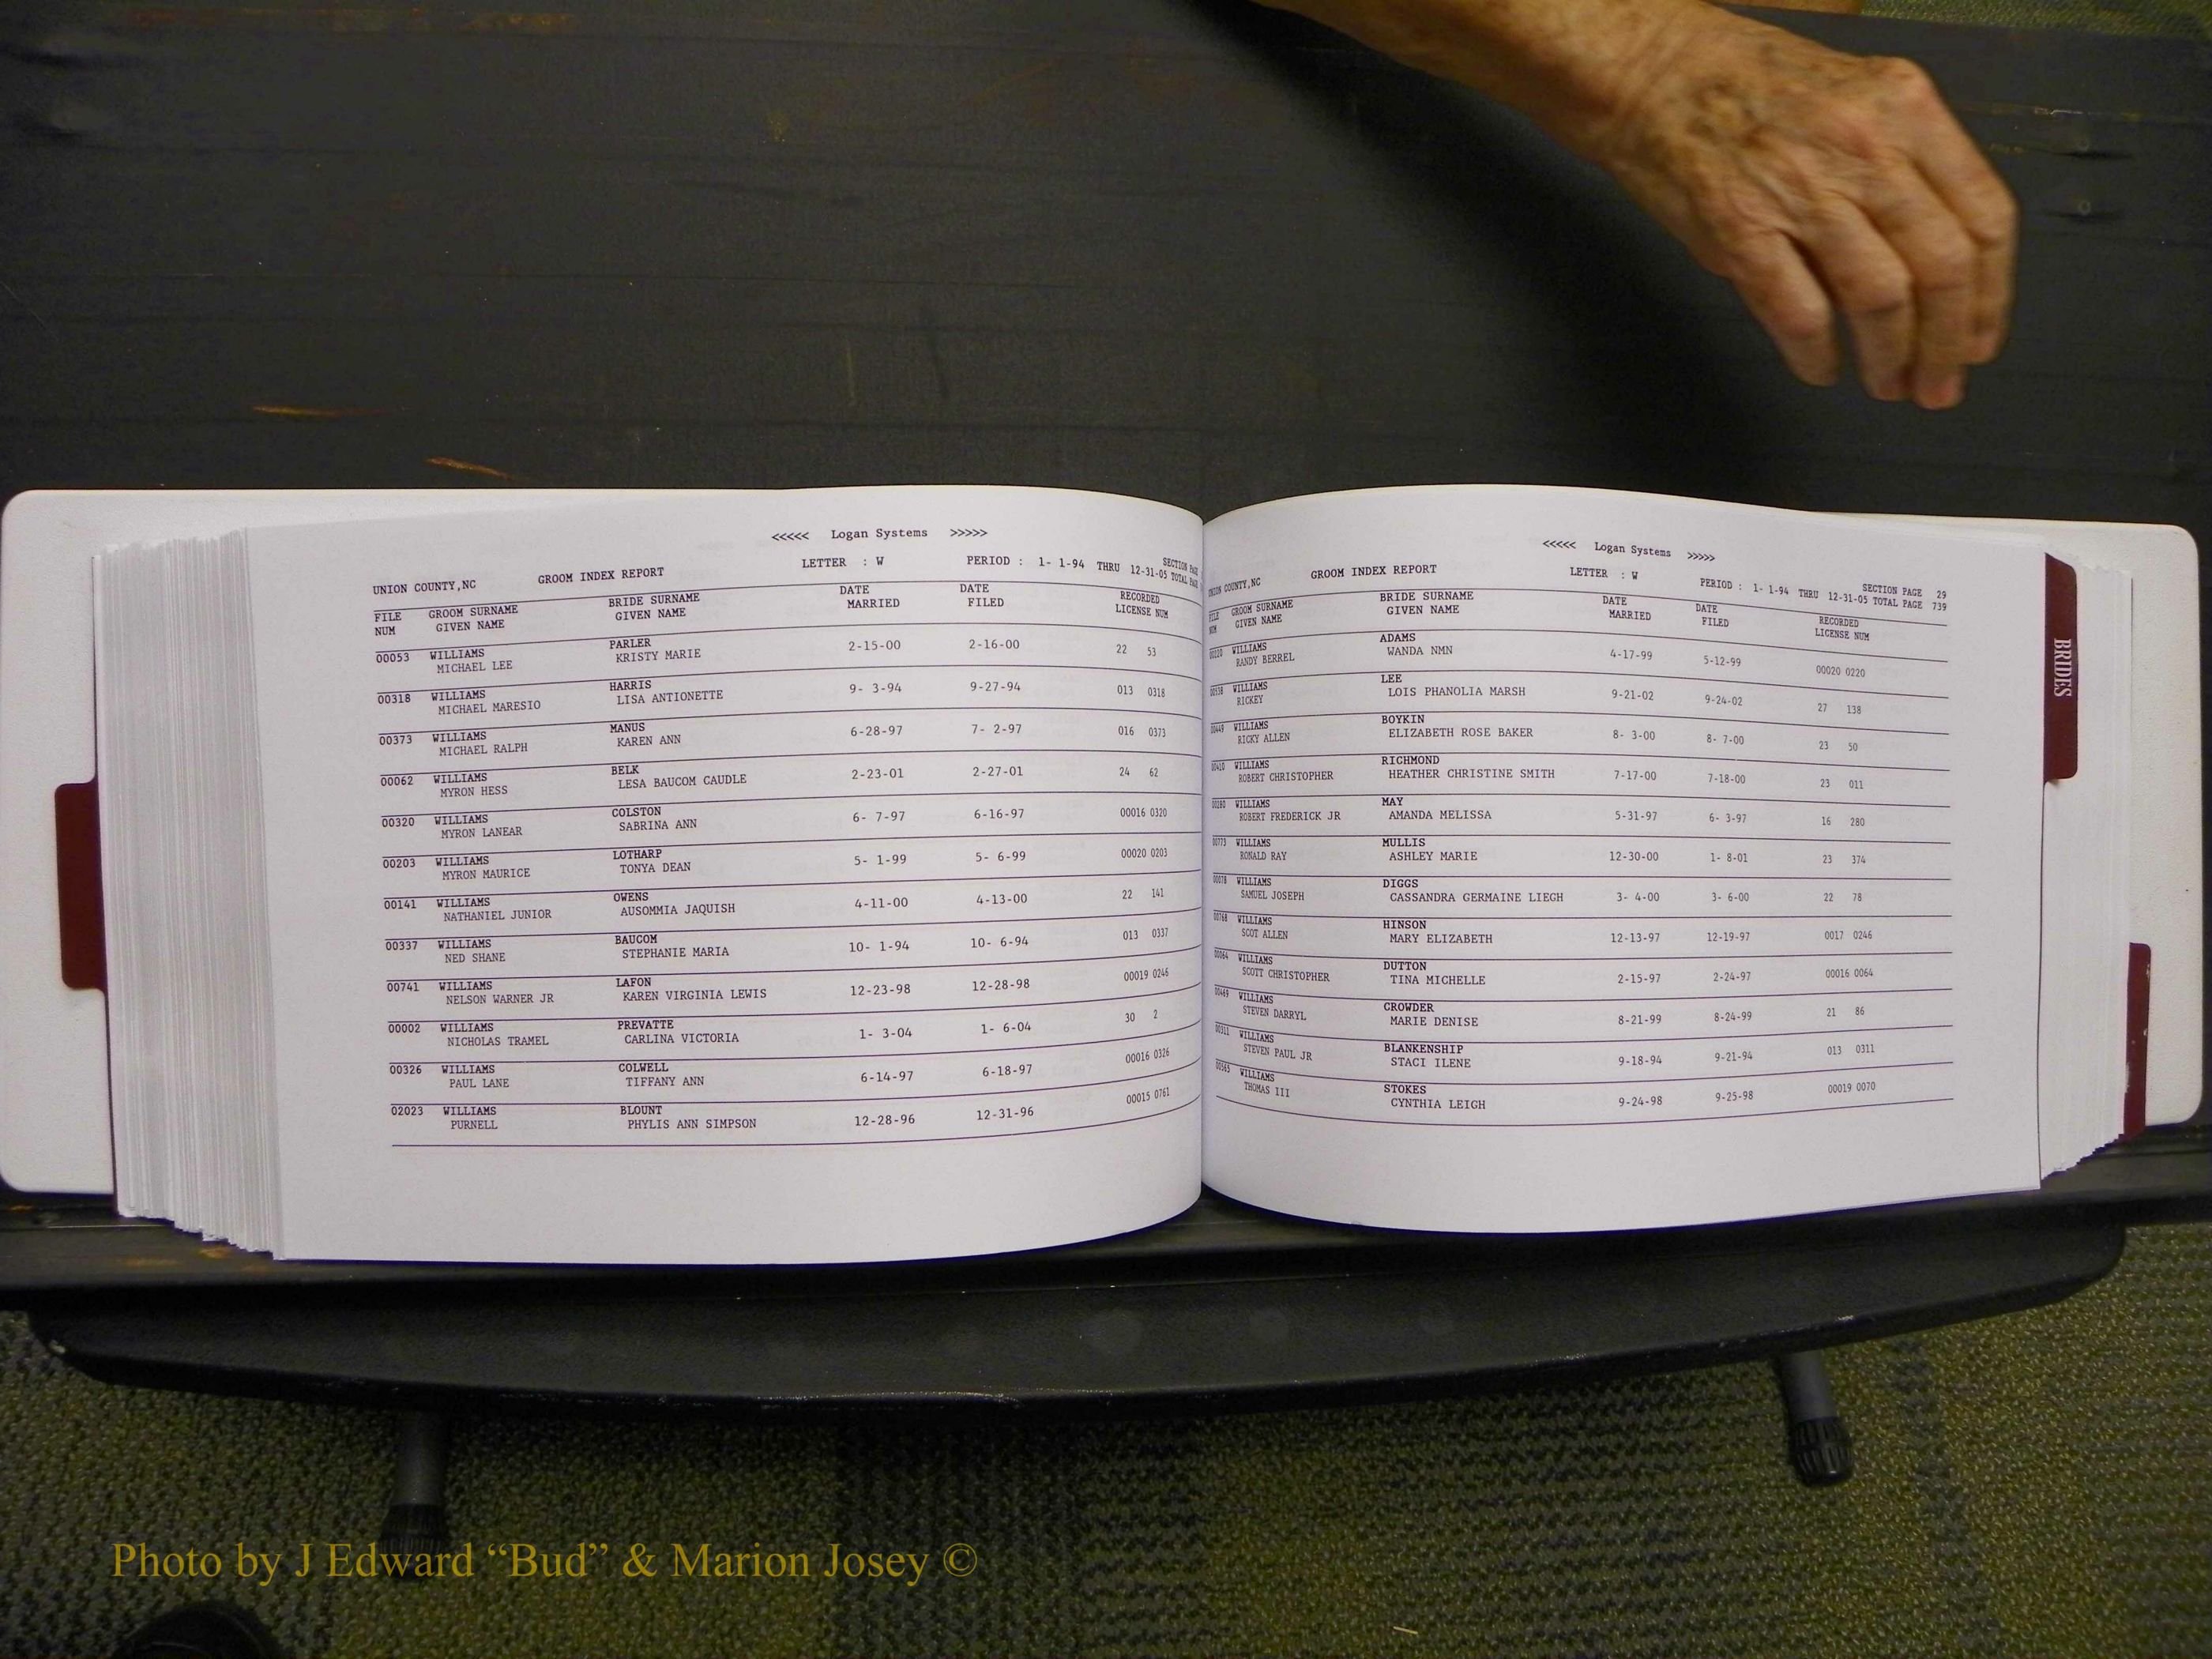 <<<<< Logan Systems >>>>>
UNION COUNTY,NC GROOM INDEX REPORT LETTER : W PERIOD : 1- 1-94 THRU 12-31-05 SECTION PAGE
TOTAL PAGE
FILE GROOM SURNAME BRIDE SURNAME DATE DATE RECORDED
NUM GIVEN NAME GIVEN NAME MARRIED FILED LICENSE NUM
00053 WILLIAMS PARLER 2-15-00 2-16-00 22 53
MICHAEL LEE KRISTY MARIE
00318 WILLIAMS HARRIS 9- 3-94 9-27-94 013 0318
MICHAEL MARESIO LISA ANTIONETTE
00373 WILLIAMS MANUS 6-28-97 7- 2-97 016 0373
MICHAEL RALPH KAREN ANN
00062 WILLIAMS BELK 2-23-01 2-27-01 24 62
MYRON HESS LESA BAUCOM CAUDLE
00320 WILLIAMS COLSTON 6- 7-97 6-16-97 00016 0320
MYRON LANEAR SABRINA ANN
00203 WILLIAMS LOTHARP 5- 1-99 5- 6-99 00020 0203
MYRON MAURICE TONYA DEAN
00141 WILLIAMS OWENS 4-11-00 4-13-00 22 141
NATHANIEL JUNIOR AUSOMMIA JAQUISH
00337 WILLIAMS BAUCOM 10- 1-94 10- 6-94 013 0337
NED SHANE STEPHANIE MARIA
00741 WILLIAMS LAFON 12-23-98 12-28-98 00019 0246
NELSON WARNER JR KAREN VIRGINIA LEWIS
00002 WILLIAMS PREVATTE 1- 3-04 1- 6-04 30 2
NICHOLAS TRAMEL CARLINA VICTORIA
00326 WILLIAMS COLWELL 6-14-97 6-18-97 00016 0326
PAUL LANE TIFFANY ANN
02023 WILLIAMS BLOUNT 12-28-96 12-31-96 00015 0761
PURNELL PHYLIS ANN SIMPSON
<<<<< Logan Systems >>>>>
UNION COUNTY,NC GROOM INDEX REPORT LETTER : W PERIOD : 1- 1-94 THRU 12-31-05 SECTION PAGE 29
TOTAL PAGE 739
FILE GROOM SURNAME BRIDE SURNAME DATE DATE RECORDED
NUM GIVEN NAME GIVEN NAME MARRIED FILED LICENSE NUM
00220 WILLIAMS ADAMS 4-17-99 5-12-99 00020 0220
RANDY BERREL WANDA NMN
00538 WILLIAMS LEE 9-21-02 9-24-02 27 138
RICKEY LOIS PHANOLIA MARSH
00449 WILLIAMS BOYKIN 8- 3-00 8- 7-00 23 50
RICKY ALLEN ELIZABETH ROSE BAKER
00410 WILLIAMS RICHMOND 7-17-00 7-18-00 23 011
ROBERT CHRISTOPHER HEATHER CHRISTINE SMITH
00280 WILLIAMS MAY 5-31-97 6- 3-97 16 280
ROBERT FREDERICK JR AMANDA MELISSA
00773 WILLIAMS MULLIS 12-30-00 1- 8-01 23 374
RONALD RAY ASHLEY MARIE
00078 WILLIAMS DIGGS 3- 4-00 3- 6-00 22 78
SAMUEL JOSEPH CASSANDRA GERMAINE LIEGH
00768 WILLIAMS HINSON 12-13-97 12-19-97 0017 0246
SCOT ALLEN MARY ELIZABETH
00064 WILLIAMS DUTTON 2-15-97 2-24-97 00016 0064
SCOTT CHRISTOPHER TINA MICHELLE
00469 WILLIAMS CROWDER 8-21-99 8-24-99 21 86
STEVEN DARRYL MARIE DENISE
00311 WILLIAMS BLANKENSHIP 9-18-94 9-21-94 013 0311
STEVEN PAUL JR STACI ILENE
00565 WILLIAMS STOKES 9-24-98 9-25-98 00019 0070
THOMAS III CYNTHIA LEIGH
BRIDES
Photo by J Edward “Bud” & Marion Josey ©